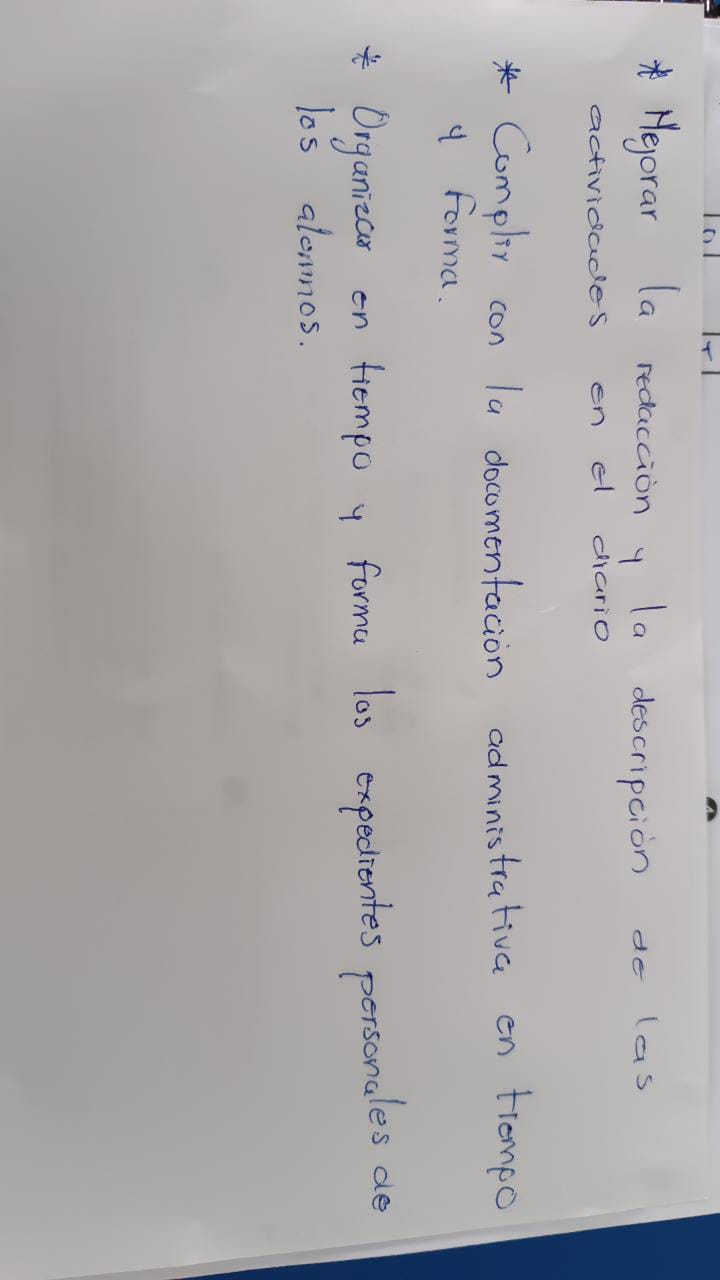 * Mejorar la redacción y la descripción de las
actividades en el diario
* Cumplir con la documentación administrativa en tiempo
y forma.
* Organizar en tiempo y forma los expedientes personales de
los alumnos.